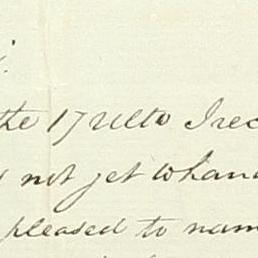 the 17 Ulto I rec
not yet to hand
pleased to nam